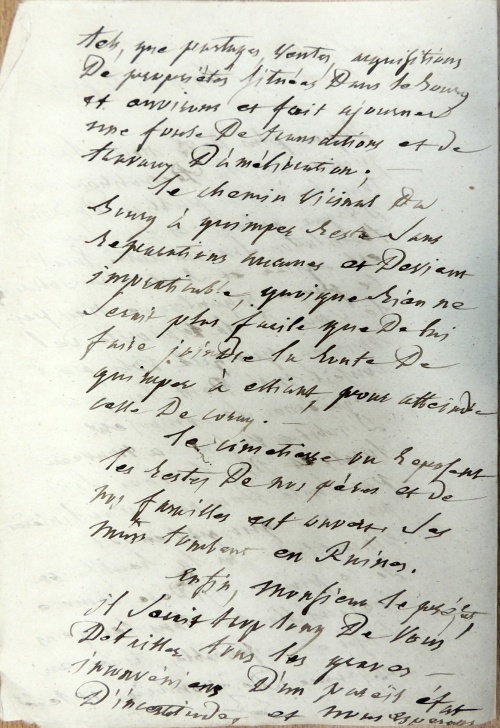 tels, que partages, ventes, acquisitions
De propriétés situées Dans le Bourg
et environs et fait ajourner
une foule De transactions et de
travaux D'amélioration;
Le chemin Vicinal Du
Bourg à quimper Reste Sans
Réparations aucunes et Devient
impraticable, quoique Rien ne
Serait plus facile que De lui
faire joindre la Route De
quimper à elliant, pour atteindre
celle De coray. -
Le cimetière ou Reposent
les Restes De nos pères et de
nos familles est ouvert, Ses
murs tombent en Ruines.
Enfin, Monsieur le préfet,
il Serait trop long De Vous
Détailler tous les graves
inconvéniens D'un pareil état
D'incertitudes et nous espérons